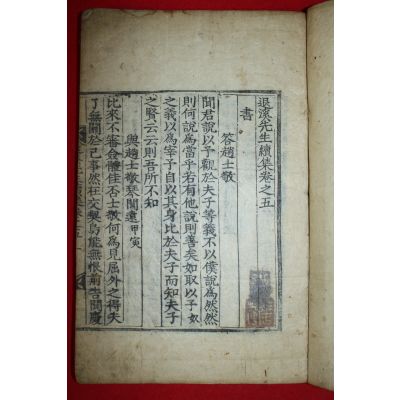 退溪先生續集卷之五
書
答趙士敬
聞君說以予觀於夫子等義不以僕說爲然然
則何說爲當乎若有他說則善矣如取以予
之義以爲宰予自以其身比於夫子而知夫子
之賢云云則吾所不知
與趙士敬琴聞遠 甲寅
比來不審僉體佳否士敬何爲見屈外之得失
了無關於己事然在交契烏能無恨前者聞慶